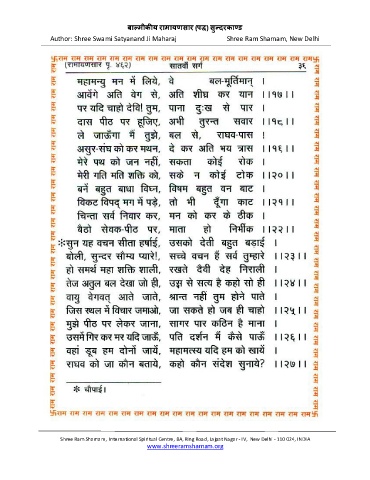 बाल्मीकीय रामायणसार (पद्य) सुन्दरकाण्ड
Author: Shree Swami Satyanand Ji Maharaj Shree Ram Sharnam, New Delhi
राम राम राम राम राम राम राम राम राम राम राम राम राम राम राम राम राम राम
(रामायणसार पृ. ४६२) सातवाँ सर्ग ३६
महामन्यु मन में लिये, वे बल-मूर्तिमान् ।
आवेंगे अति वेग से, अति शीघ्र कर यान ।।१७।।
पर यदि चाहो देवि! तुम, पाना दुःख से पार ।
दास पीठ पर हूजिए, अभी तुरन्त सवार ।।१८।।
ले जाऊँगा मैं तुझे, बल से, राघव-पास ।
असुर-संघ को कर मथन, दे कर अति भय त्रास ।।१९।।
मेरे पथ को जन नहीं, सकता कोई रोक ।
मेरी गति मति शक्ति को, सके न कोई टोक ।।२०।।
बनें बहुत बाधा विघ्न, विषम बहुत वन बाट ।
विकट विपद् मग में पड़े, तो भी दूँगा काट ।।२१।।
चिन्ता सर्व निवार कर, मन को कर के ठीक ।
बैठो सेवक-पीठ पर, माता हो निर्भीक ।।२२।।
※सुन यह वचन सीता हर्षाई, उसको देती बहुत बड़ाई ।
बोली, सुन्दर सौम्य प्यारे!, सच्चे वचन हैं सर्व तुम्हारे ।।२३।।
हो समर्थ महा शक्ति शाली, रखते दैवी देह निराली ।
तेज अतुल बल देखा जो ही, उस से सत्य है कहो सो ही ।।२४।।
वायु वेगवत् आते जाते, श्रान्त नहीं तुम होने पाते ।
जिस स्थल में विचार जमाओ, जा सकते हो जब ही चाहो ।।२५।।
मुझे पीठ पर लेकर जाना, सागर पार कठिन है माना ।
उसमें गिर कर मर यदि जाऊँ, पति दर्शन मैं कैसे पाऊँ ।।२६।।
वहां डूब हम दोनों जायें, महामत्स्य यदि हम को खायें ।
राघव को जा कौन बताये, कहो कौन संदेश सुनाये? ।।२७।।
※ चौपाई।
राम राम राम राम राम राम राम राम राम राम राम राम राम राम राम राम राम राम
Shree Ram Sharnam, International Spiritual Centre, 8A, Ring Road, Lajpat Nagar - IV, New Delhi - 110 024, INDIA
www.shreeramsharnam.org